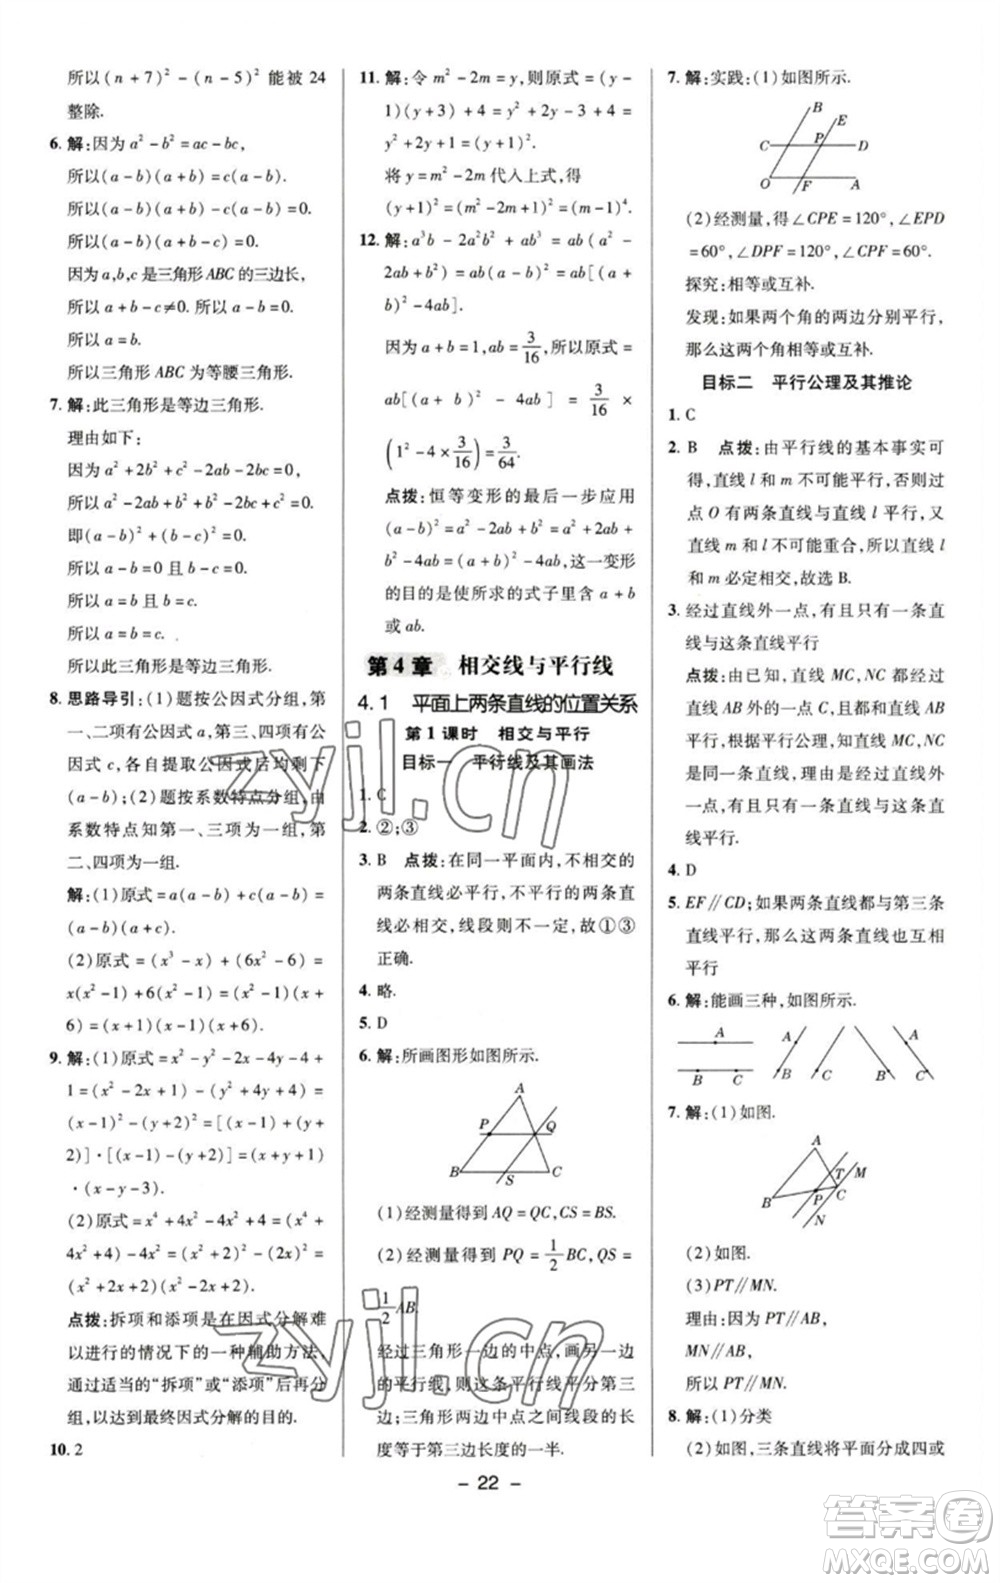 所以(n+7)²-(n-5)²能被24
整除.
6. 解:因为a²-b²=ac-bc,
所以(a-b)(a+b)=c(a-b).
所以(a-b)(a+b)-c(a-b)=0.
所以(a-b)(a+b-c)=0.
因为a,b,c是三角形ABC的三边长,
所以a+b-c≠0. 所以a-b=0.
所以a=b.
所以三角形ABC为等腰三角形.
7. 解:此三角形是等边三角形.
理由如下:
因为a²+2b²+c²-2ab-2bc=0,
所以a²-2ab+b²+b²-2bc+c²=0,
即(a-b)²+(b-c)²=0.
所以a-b=0且b-c=0.
所以a=b且b=c.
所以a=b=c.
所以此三角形是等边三角形.
8. 思路导引:(1)题按公因式分组,第
一、二项有公因式a,第三、四项有公
因式c,各组提取公因式后均剩下
(a-b);(2)题按系数特点分组,由
系数特点知第一、三项为一组,第
二、四项为一组.
解:(1)原式=a(a-b)+c(a-b)=
(a-b)(a+c).
(2)原式=(x³-x)+(6x²-6)=
x(x²-1)+6(x²-1)=(x²-1)(x+
6)=(x+1)(x-1)(x+6).
9. 解:(1)原式=x²-y²-2x-4y-4+
1=(x²-2x+1)-(y²+4y+4)=
(x-1)²-(y+2)²=[(x-1)+(y+
2)]·[(x-1)-(y+2)]=(x+y+1)
·(x-y-3).
(2)原式=x⁴+4x²-4x²+4=(x⁴+
4x²+4)-4x²=(x²+2)²-(2x)²=
(x²+2x+2)(x²-2x+2).
点拨:拆项和添项是在因式分解难
以进行的情况下的一种辅助方法,
通过适当的“拆项”或“添项”后再分
组,以达到最终因式分解的目的.
10. 2
11. 解:令m²-2m=y,则原式=(y-
1)(y+3)+4=y²+2y-3+4=
y²+2y+1=(y+1)².
将y=m²-2m代入上式,得
(y+1)²=(m²-2m+1)²=(m-1)⁴.
12. 解:a³b-2a²b²+ab³=ab(a²-
2ab+b²)=ab(a-b)²=ab[(a+
b)²-4ab].
因为a+b=1,ab=3/16,所以原式=
ab[(a+b)²-4ab]=3/16×
(1²-4×3/16)=3/64.
点拨:恒等变形的最后一步应用
(a-b)²=a²-2ab+b²=a²+2ab+
b²-4ab=(a+b)²-4ab,这一变形
的目的是使所求的式子里含有a+b
或ab.
第4章 相交线与平行线
4.1 平面上两条直线的位置关系
第1课时 相交与平行
目标一 平行线及其画法
1. C
2. ②;③
3. B 点拨:在同一平面内,不相交的
两条直线必平行,不平行的两条直
线必相交,线段则不一定,故①③
正确.
4. 略.
5. D
6. 解:所画图形如图所示.
A
P Q
B S C
(1)经测量得到AQ=QC,CS=BS.
(2)经测量得到PQ=1/2BC,QS=
1/2AB.
经过三角形一边的中点,画另一边
的平行线,则这条平行线平分第三
边;三角形两边中点之间线段的长
度等于第三边长度的一半.
7. 解:实践:(1)如图所示.
B E
C P D
O F A
(2)经测量,得∠CPE=120°,∠EPD
=60°,∠DPF=120°,∠CPF=60°.
探究:相等或互补.
发现:如果两个角的两边分别平行,
那么这两个角相等或互补.
目标二 平行公理及其推论
1. C
2. B 点拨:由平行线的基本事实可
得,直线l和m不可能平行,否则过
点O有两条直线与直线l平行,又
直线m和l不可能重合,所以直线l
和m必定相交,故选B.
3. 经过直线外一点,有且只有一条直
线与这条直线平行
点拨:因为直线MC,NC都经过
直线AB外的一点C,且都与AB
平行,根据平行公理,知直线MC,NC
是同一条直线,即经过直线外
一点,有且只有一条直线与这条直
线平行.
4. D
5. EF∥CD;如果两条直线都与第三条
直线平行,那么这两条直线也互相
平行
6. 解:能画三种,如图所示.
A A A
B C B C B C
7. 解:(1)如图.
A
T M
B P C
N
(2)如图.
(3)PT∥MN.
理由:因为PT∥AB,
MN∥AB,
所以PT∥MN.
8. 解:(1)分类
(2)如图,三条直线将平面分成四或
- 22 -
zyjl.cn
zyjl.cn
答案圈
MXQE.COM